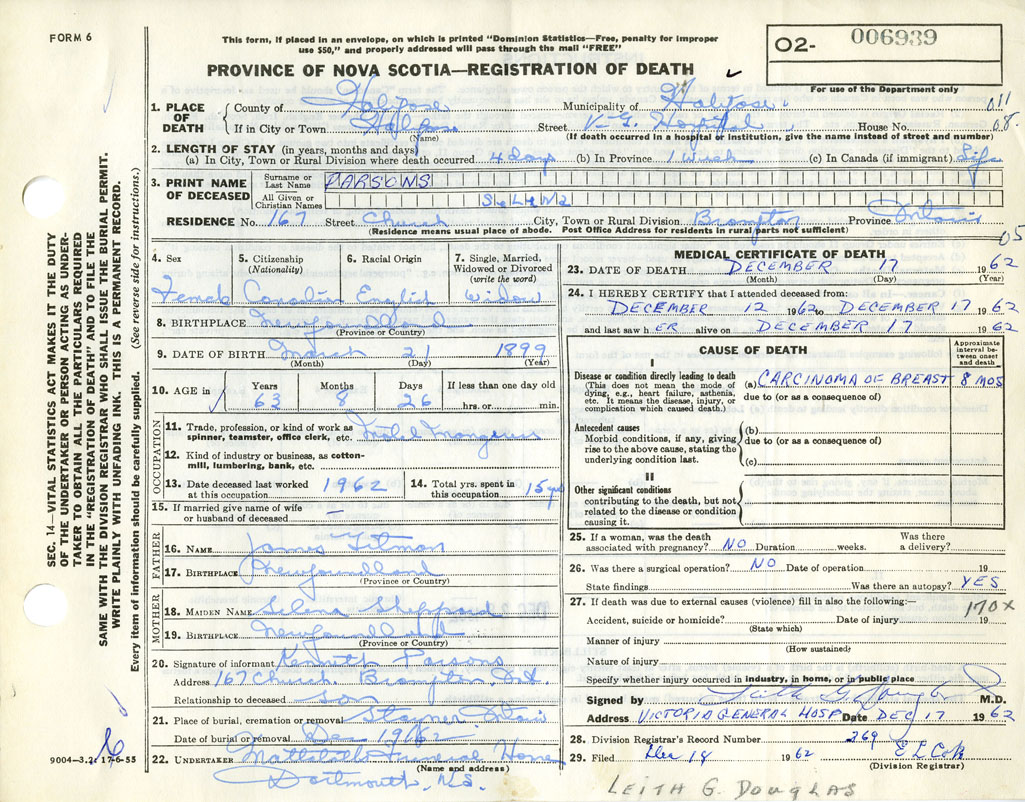 FORM 6
This form, if placed in an envelope, on which is printed "Dominion Statistics—Free, penalty for improper
use $50," and properly addressed will pass through the mail "FREE"
PROVINCE OF NOVA SCOTIA—REGISTRATION OF DEATH
O2- 006939
For use of the Department only
011
08.
1. PLACE OF DEATH
County of Halifax Municipality of Halifax
If in City or Town Halifax Street V.G. Hospital House No.
(Name) (If death occurred in a hospital or institution, give the name instead of street and number)
2. LENGTH OF STAY (in years, months and days)
(a) In City, Town or Rural Division where death occurred 4 days (b) In Province 1 week (c) In Canada (if immigrant) Life
3. PRINT NAME OF DECEASED
Surname or Last Name PARSONS
All Given or Christian Names
RESIDENCE No. 167 Street Church City, Town or Rural Division Brampton Province Ontario
(Residence means usual place of abode. Post Office Address for residents in rural parts not sufficient)
05
4. Sex 5. Citizenship (Nationality) 6. Racial Origin 7. Single, Married, Widowed or Divorced (write the word)
Female Canadian English Widow
8. BIRTHPLACE Newfoundland
(Province or Country)
9. DATE OF BIRTH March 21 1899
(Month) (Day) (Year)
10. AGE in Years Months Days If less than one day old
63 8 26 hrs. or min.
OCCUPATION
11. Trade, profession, or kind of work as spinner, teamster, office clerk, etc. Motel
12. Kind of industry or business, as cotton-mill, lumbering, bank, etc.
13. Date deceased last worked at this occupation 1962 14. Total yrs. spent in this occupation 15 yrs
15. If married give name of wife or husband of deceased
FATHER
16. NAME James
17. BIRTHPLACE Newfoundland
(Province or Country)
MOTHER
18. MAIDEN NAME Selena Sheppard
19. BIRTHPLACE Newfoundland
(Province or Country)
20. Signature of informant Kenneth Parsons
Address 167 Church Brampton Ont.
Relationship to deceased son
21. Place of burial, cremation or removal Stayner Ontario
Date of burial or removal Dec 19/62
22. UNDERTAKER Mattatall Funeral Home
(Name and address)
Dartmouth, N.S.
9004—3.2: 17-6-55
MEDICAL CERTIFICATE OF DEATH
23. DATE OF DEATH DECEMBER 17 1962
(Month) (Day) (Year)
24. I HEREBY CERTIFY that I attended deceased from:
DECEMBER 12 1962 to DECEMBER 17 1962
and last saw h ER alive on DECEMBER 17 1962
CAUSE OF DEATH
Approximate interval between onset and death
I
Disease or condition directly leading to death
(This does not mean the mode of dying, e.g., heart failure, asthenia, etc. It means the disease, injury, or complication which caused death.)
(a) CARCINOMA OF BREAST 8 MOS
due to (or as a consequence of)
Antecedent causes
Morbid conditions, if any, giving rise to the above cause, stating the underlying condition last.
(b)
due to (or as a consequence of)
(c)
II
Other significant conditions
contributing to the death, but not related to the disease or condition causing it.
25. If a woman, was the death associated with pregnancy? NO Duration weeks. Was there a delivery?
26. Was there a surgical operation? NO Date of operation 19
State findings Was there an autopsy? YES
27. If death was due to external causes (violence) fill in also the following:—
170X
Accident, suicide or homicide? Date of injury 19
(State which)
Manner of injury
(How sustained)
Nature of injury
Specify whether injury occurred in industry, in home, or in public place
Signed by Leith G. Douglas M.D.
Address VICTORIA GENERAL HOSP Date DEC 17 1962
28. Division Registrar's Record Number 269
29. Filed Dec 18 1962
(Division Registrar)
LEITH G. DOUGLAS
SEC. 14—VITAL STATISTICS ACT MAKES IT THE DUTY
OF THE UNDERTAKER OR PERSON ACTING AS UNDER-
TAKER TO OBTAIN ALL THE PARTICULARS REQUIRED
IN THE "REGISTRATION OF DEATH" AND TO FILE THE
SAME WITH THE DIVISION REGISTRAR WHO SHALL ISSUE THE BURIAL PERMIT.
WRITE PLAINLY WITH UNFADING INK. THIS IS A PERMANENT RECORD.
Every item of information should be carefully supplied. (See reverse side for instructions.)